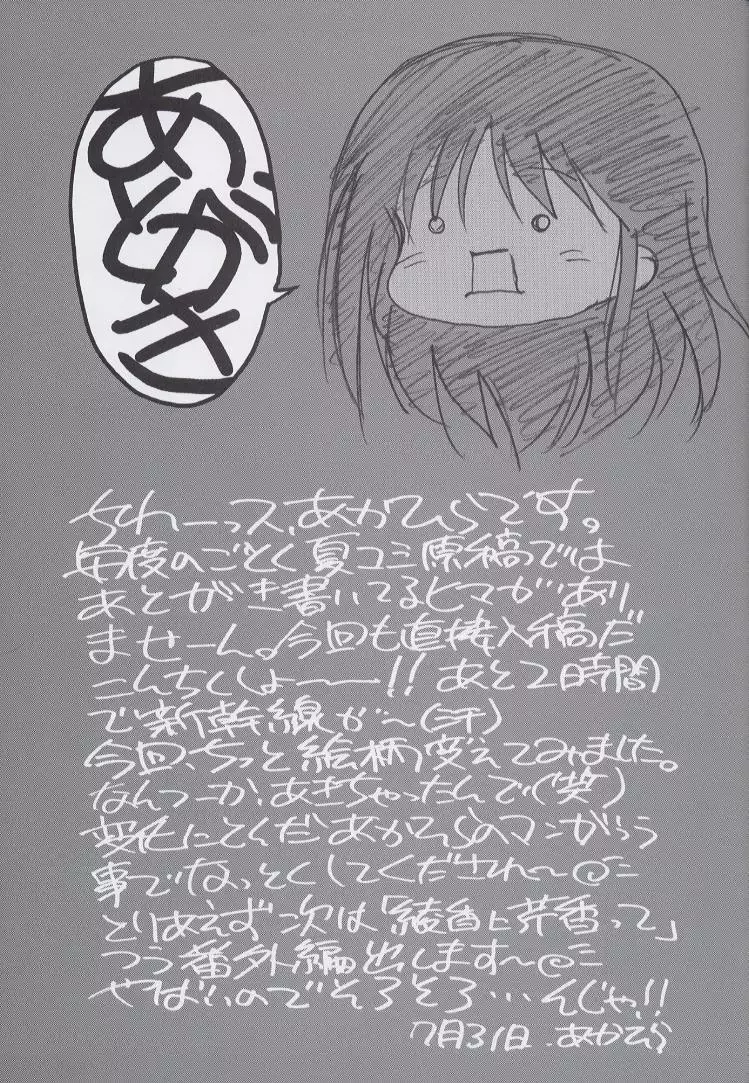 あとがき
ちわーっス、あかひらです。
毎度のごとく夏コミ原稿では
あとがき書いてるヒマがあり
ませーん。今回も直接入稿だ
こんちくしょーー!! あと2時間
で新幹線が〜(汗)
今回、ちっと絵柄変えてみました。
なんつーか、あきちゃったんで(笑)
変化にとくだあかひらのマンガっう
事でなっとくしてくだされ〜@ミ
とりあえず次は「綾香と芹香って」
つう番外編出します〜@ミ
やばいのでそろそろ…そじゃ!!
7月31日.あかひら